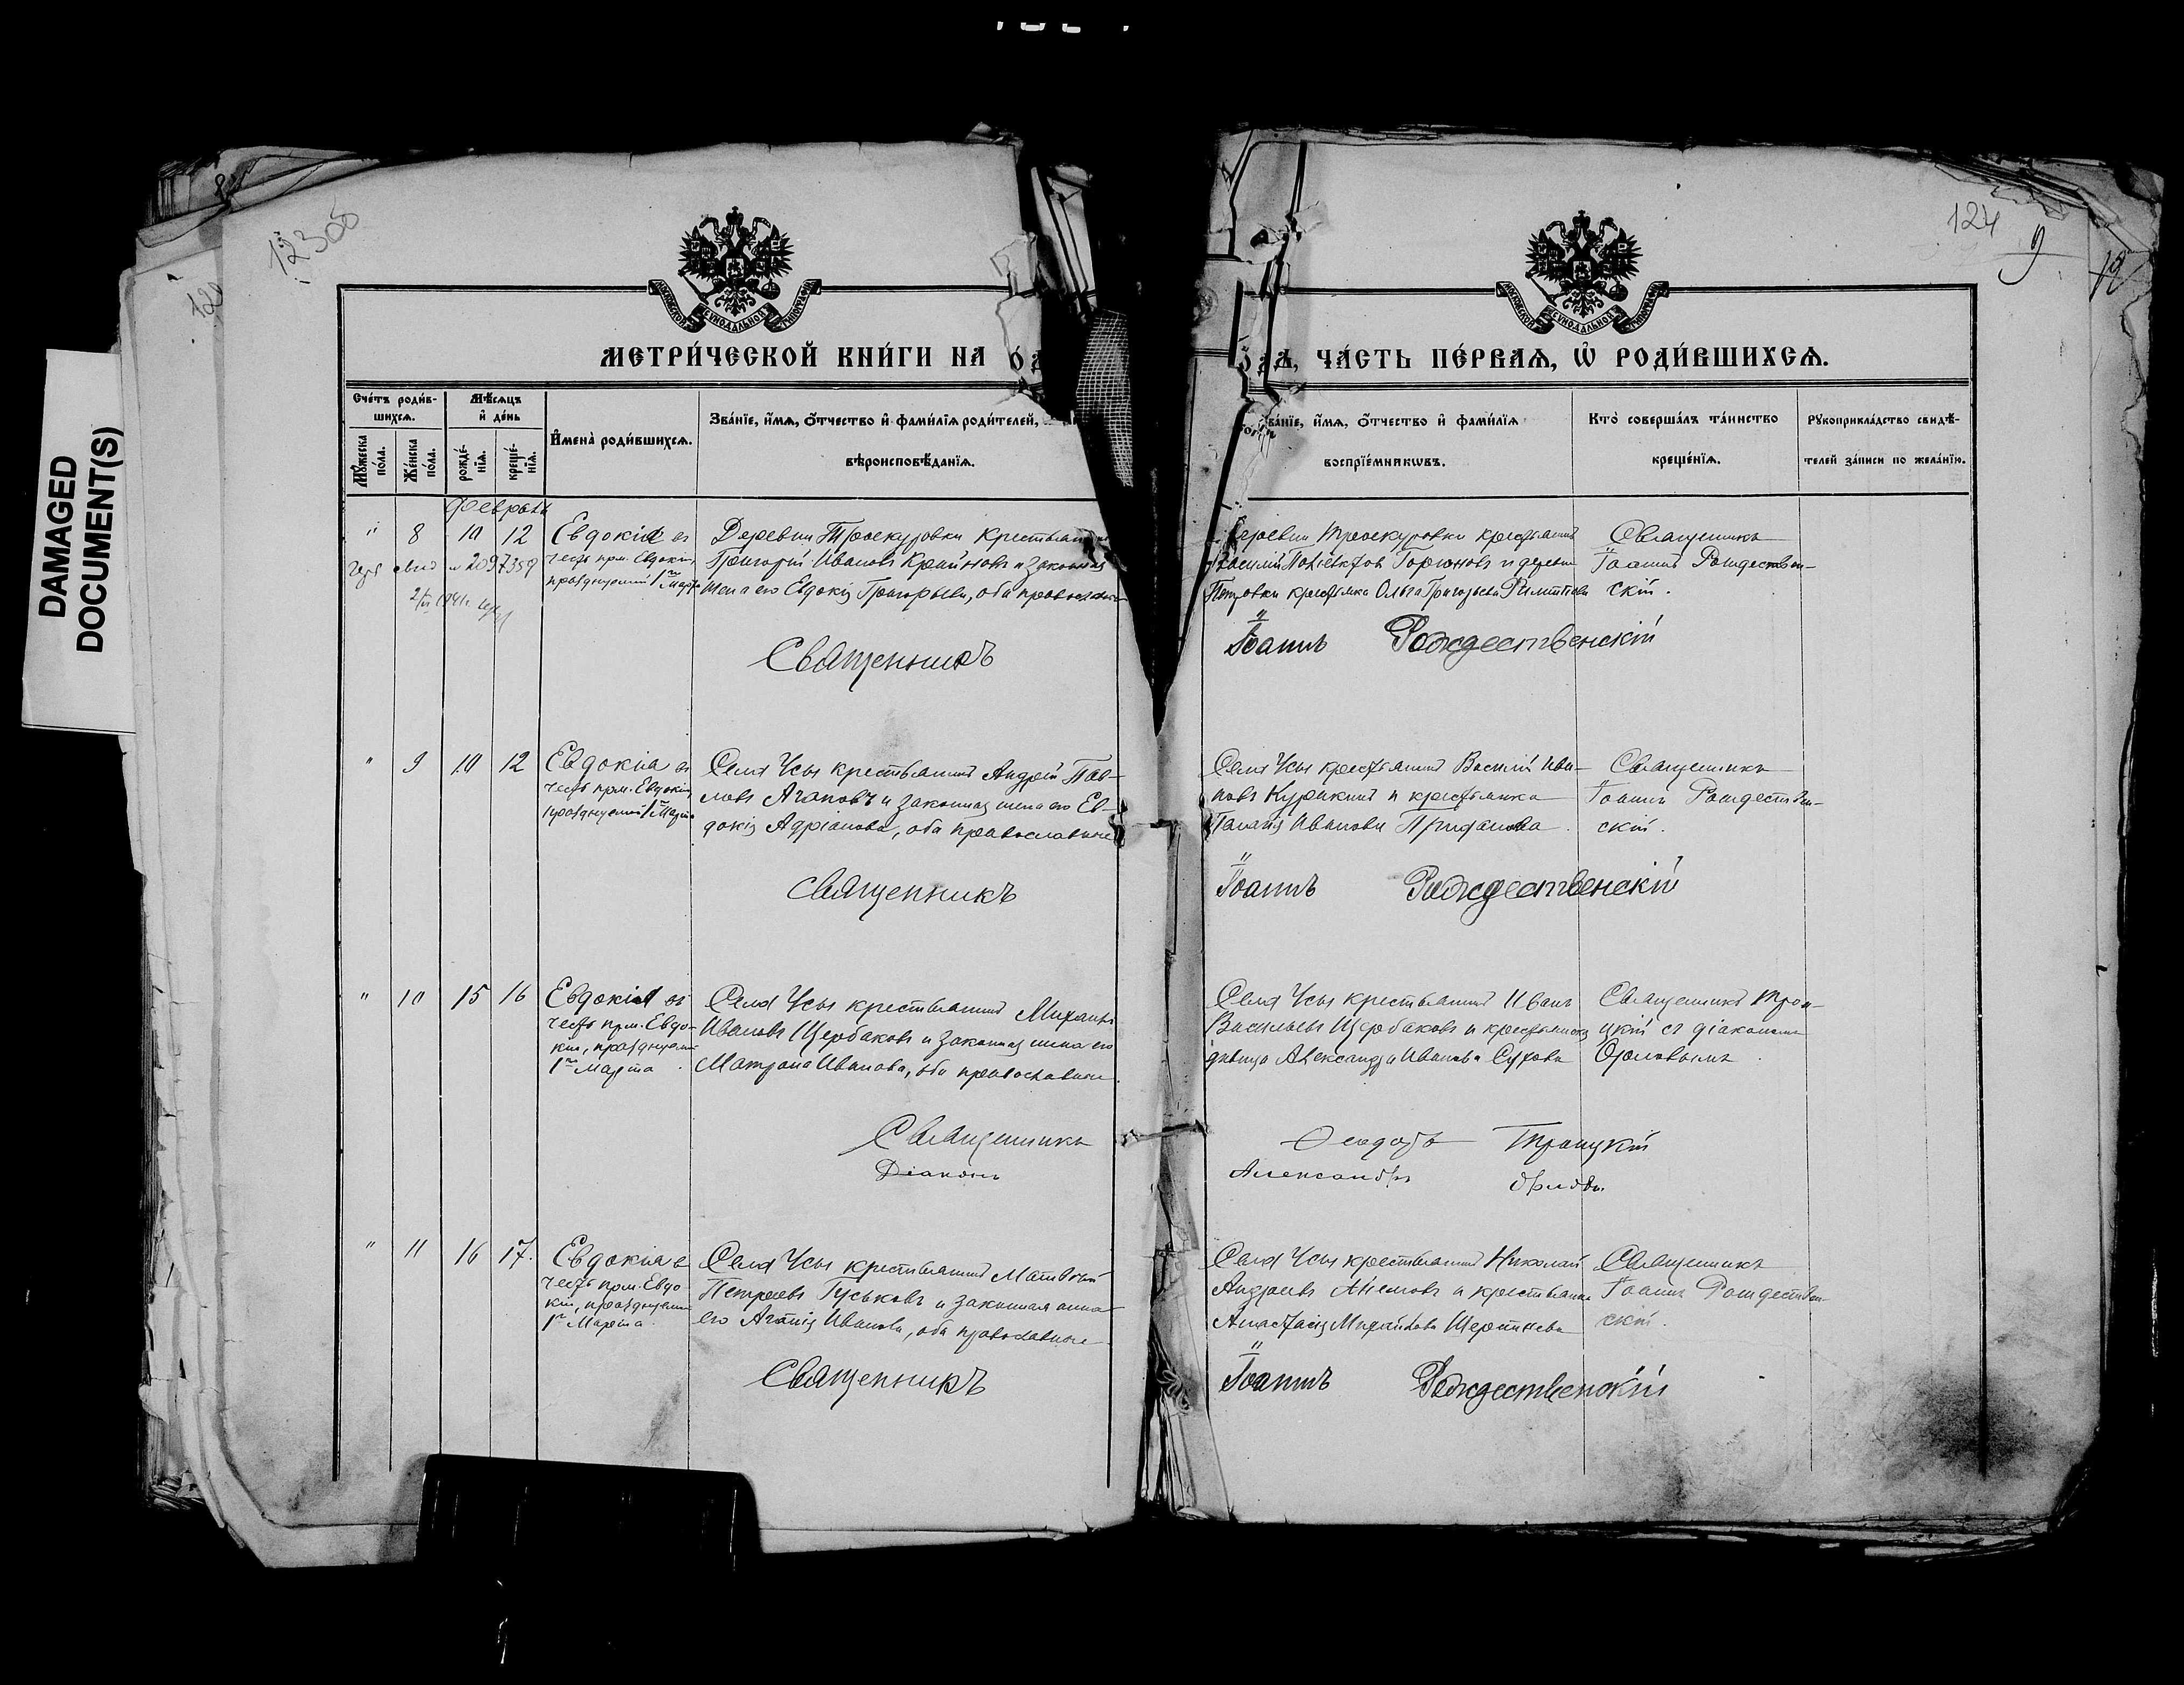 DAMAGED
DOCUMENT(S)
124
9
МЕТРИ́ЧЕСКОЙ КНИ́ГИ НА
ЧА́СТЬ ПЕ́РВАѦ, Ѡ҆ РОДИ́ВШИХСѦ.
Сче́тъ роди́в-
шихсѧ.
Мѣ́сѧцъ
и҆ де́нь
Мꙋ́жеска
по́ла.
Же́нска
по́ла.
рожде́-
нїѧ.
креще́-
нїѧ.
И҆мена̀ роди́вшихсѧ.
Зва́нїе, и҆́мѧ, ѻ҆́тчество и҆ фами́лїѧ роди́телей,
вѣроисповѣ́данїѧ.
зва́нїе, и҆́мѧ, ѻ҆́тчество и҆ фами́лїѧ
воспрїе́мникѡвъ.
Кто̀ соверша́лъ та́инство
креще́нїѧ.
Рꙋкоприкла́дство свидѣ́-
телей за́писи по жела́нїю.
Февраль
" 8 10 12
Евдокія въ
честь прм. Евдокіи,
празднуемой 1го Марта
Деревни Троекуровки крестьянинъ
Григорій Ивановъ и законная
жена его Евдокія Григорьева, оба православные
Деревни Троекуровки крестьянинъ
Василій Горюновъ и деревни
Петровки крестьянка Ольга Григорьева
Священникъ
Іоаннъ Рождествен-
скій.
Священникъ Іоаннъ Рождественскій
" 9 10 12
Евдокіа въ
честь прм. Евдокіи,
празднуемой 1го Марта
Села Усы крестьянинъ Андрей Пав-
ловъ Агаповъ и законная жена его Ев-
докія Адріанова, оба православные
Села Усы крестьянинъ Василій Ива-
новъ Курицинъ и крестьянка
Ивановна
Священникъ
Іоаннъ Рождествен-
скій.
Священникъ Іоаннъ Рождественскій
" 10 15 16
Евдокія въ
честь прм. Евдо-
кіи, празднуемой
1го Марта.
Села Усы крестьянинъ Михаилъ
Ивановъ Щербаковъ и законная жена его
Матрона Иванова, оба православные.
Села Усы крестьянинъ Иванъ
Васильевъ Щербаковъ и крестьянская
дѣвица Александра Иванова Сухова
Священникъ Трои-
цкій съ діакономъ
Орловымъ.
Священникъ Ѳеодоръ Троицкій
Діаконъ Александръ Орловъ.
" 11 16 17.
Евдокіа въ
честь прм. Евдо
кіи, празднуемой
1го Марта.
Села Усы крестьянинъ Матвѣй
Петровъ Гуськовъ и законная жена
его Агапія Иванова, оба православные
Села Усы крестьянинъ Николай
Андреевъ и крестьянка
Анастасія Михайлова
Священникъ
Іоаннъ Рождествен-
скій.
Священникъ Іоаннъ Рождественскій